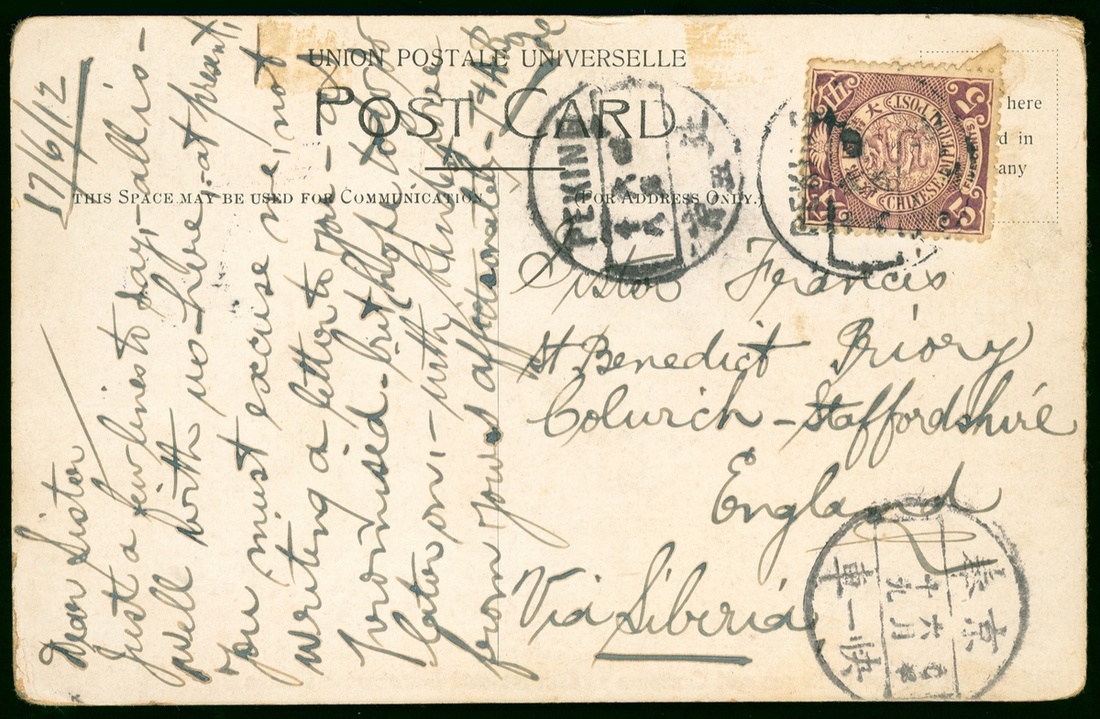 UNION POSTALE UNIVERSELLE
POST CARD
THIS SPACE MAY BE USED FOR COMMUNICATION
(FOR ADDRESS ONLY.)
here
d in
any
17/6/12
Dear Sister
Just a few lines to say, all is -
well with us - here - at present,
you must excuse me, not
writing a letter to you - as
promised - but I hope to do so
later on, - with kind love
from yours affectionately
Sister Francis
St Benedict Priory
Colwich - Staffordshire
England
Via Siberia
CHINESE IMPERIAL POST
5
5
PEKING
PEKING
京
快一車